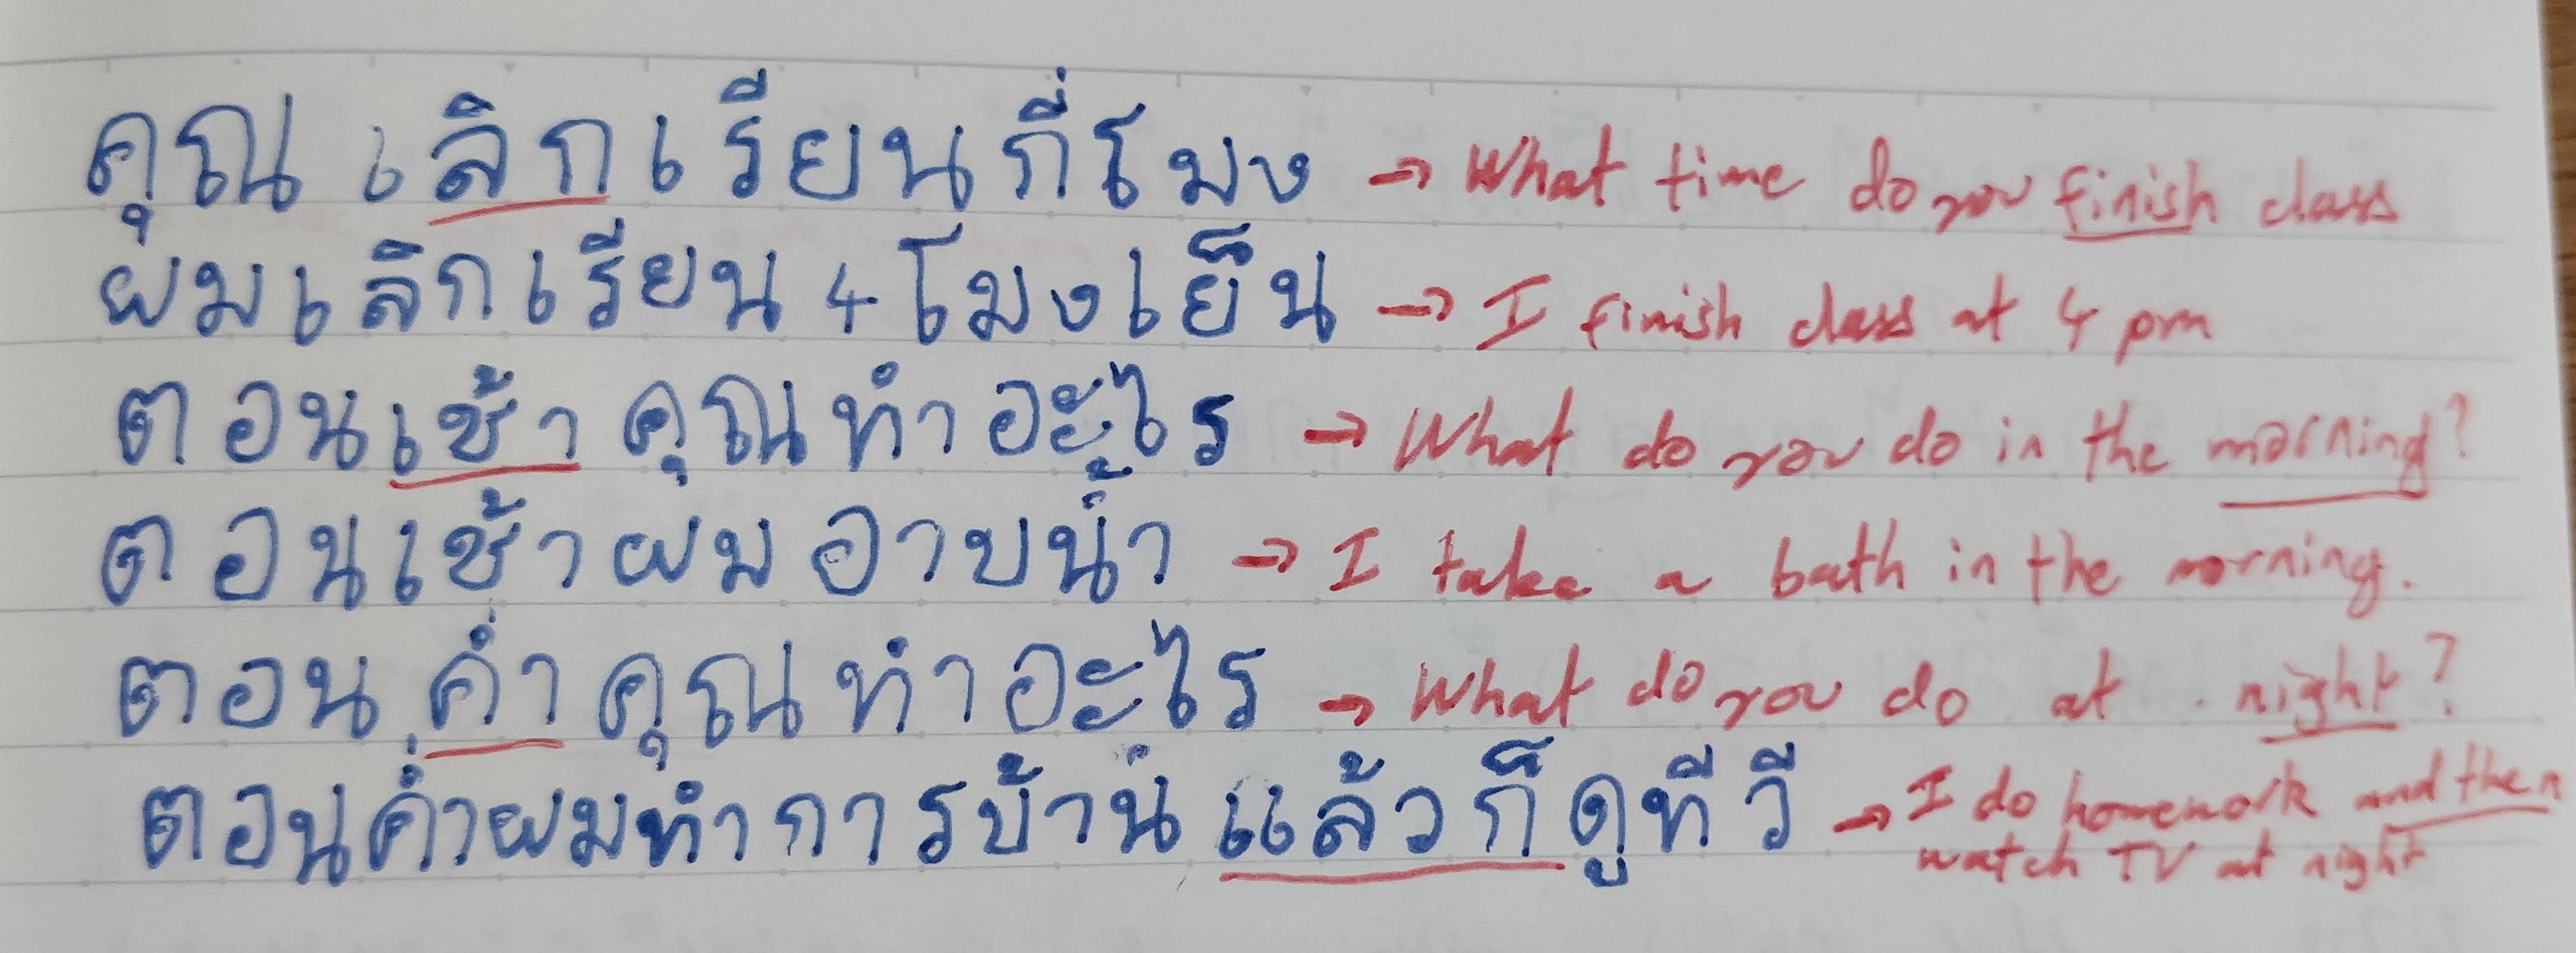 คุณเลิกเรียนกี่โมง → What time do you finish class
ผมเลิกเรียน 4 โมงเย็น → I finish class at 4 pm
ตอนเช้าคุณทำอะไร → What do you do in the morning?
ตอนเช้าผมอาบน้ำ → I take a bath in the morning.
ตอนค่ำคุณทำอะไร → What do you do at night?
ตอนค่ำผมทำการบ้านแล้วก็ดูทีวี → I do homework and then
watch TV at night